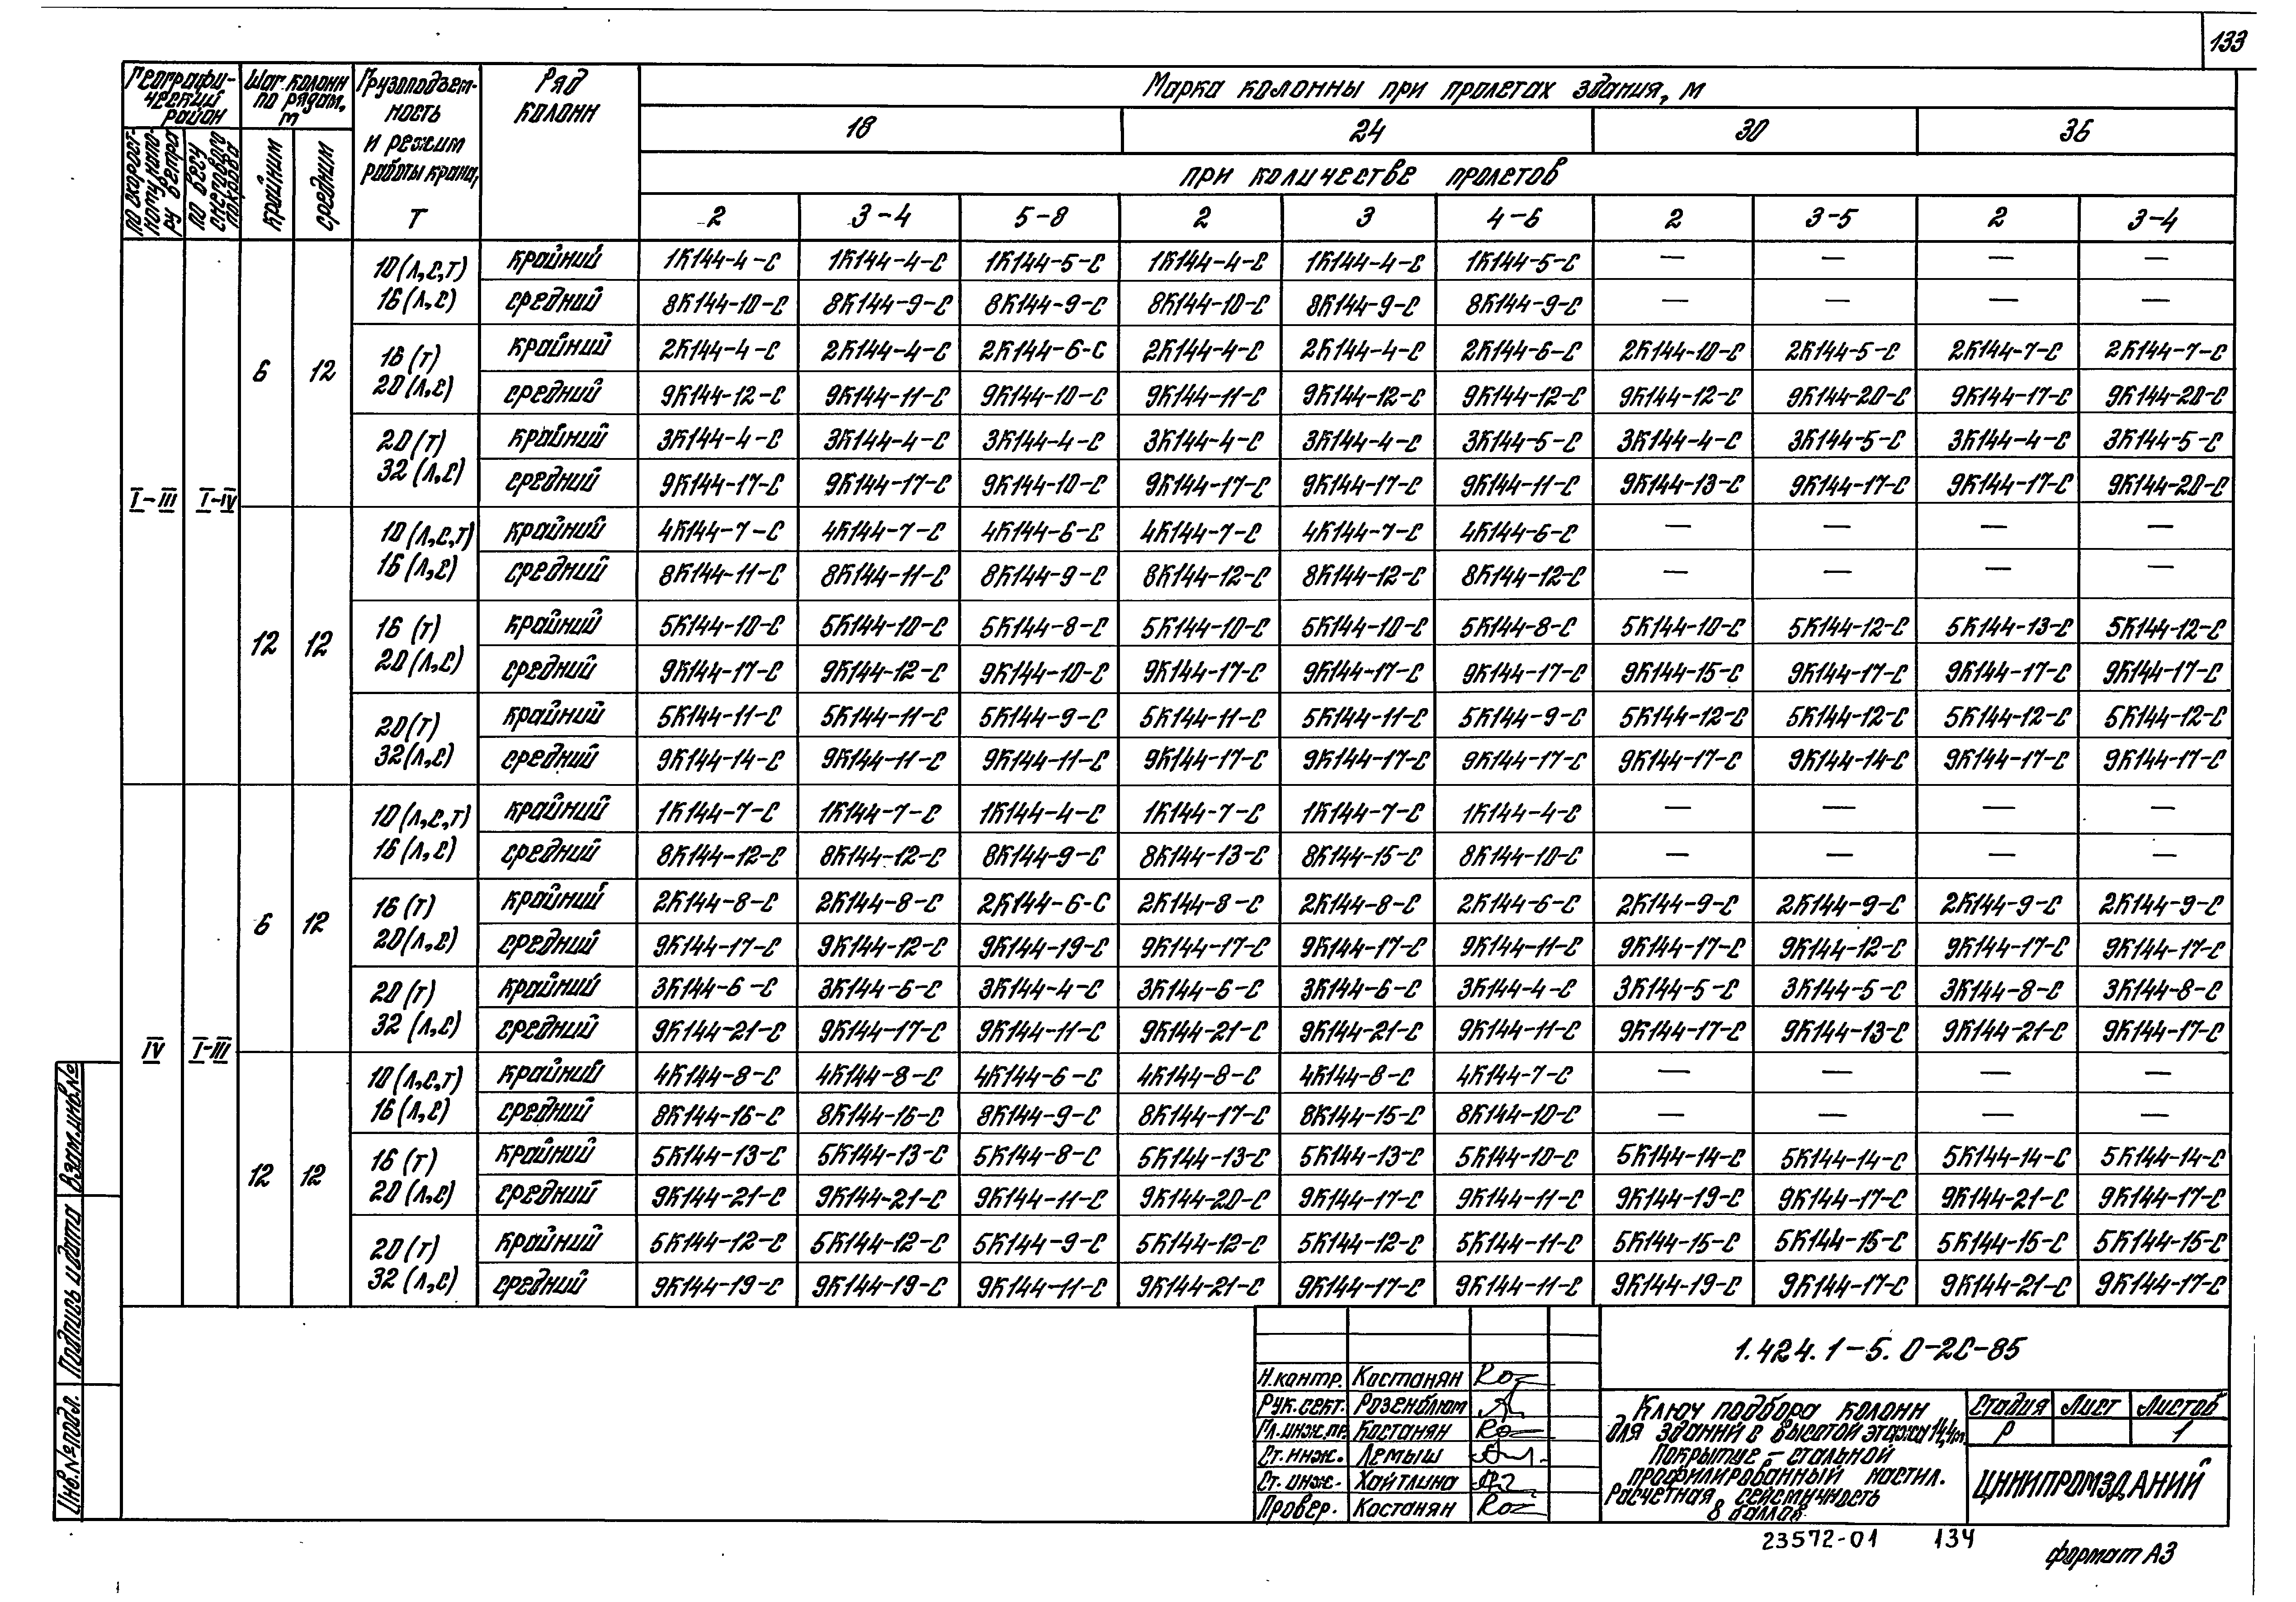 133
Географический район | Шаг колонн по рядам, м | Грузоподъемность и режим работы крана, т | Ряд колонн | Марка колонны при пролетах здания, м
по скоростному напору ветра | по весу снегового покрова | крайним | средним | 18 | 24 | 30 | 36
при количестве пролетов
2 | 3-4 | 5-8 | 2 | 3 | 4-6 | 2 | 3-5 | 2 | 3-4
I-III | I-IV
6 | 12
10 (Л,С,Т) 16 (Л,С)
крайний | 1К144-4-С | 1К144-4-С | 1К144-5-С | 1К144-4-С | 1К144-4-С | 1К144-5-С | — | — | — | —
средний | 8К144-10-С | 8К144-9-С | 8К144-9-С | 8К144-10-С | 8К144-9-С | 8К144-9-С | — | — | — | —
16 (Т) 20 (Л,С)
крайний | 2К144-4-С | 2К144-4-С | 2К144-6-С | 2К144-4-С | 2К144-4-С | 2К144-6-С | 2К144-10-С | 2К144-5-С | 2К144-7-С | 2К144-7-С
средний | 9К144-12-С | 9К144-11-С | 9К144-10-С | 9К144-11-С | 9К144-12-С | 9К144-12-С | 9К144-12-С | 9К144-20-С | 9К144-17-С | 9К144-20-С
20 (Т) 32 (Л,С)
крайний | 3К144-4-С | 3К144-4-С | 3К144-4-С | 3К144-4-С | 3К144-4-С | 3К144-5-С | 3К144-4-С | 3К144-5-С | 3К144-4-С | 3К144-5-С
средний | 9К144-17-С | 9К144-17-С | 9К144-10-С | 9К144-17-С | 9К144-17-С | 9К144-11-С | 9К144-13-С | 9К144-17-С | 9К144-17-С | 9К144-20-С
12 | 12
10 (Л,С,Т) 16 (Л,С)
крайний | 4К144-7-С | 4К144-7-С | 4К144-6-С | 4К144-7-С | 4К144-7-С | 4К144-6-С | — | — | — | —
средний | 8К144-11-С | 8К144-11-С | 8К144-9-С | 8К144-12-С | 8К144-12-С | 8К144-12-С | — | — | — | —
16 (Т) 20 (Л,С)
крайний | 5К144-10-С | 5К144-10-С | 5К144-8-С | 5К144-10-С | 5К144-10-С | 5К144-8-С | 5К144-10-С | 5К144-12-С | 5К144-13-С | 5К144-12-С
средний | 9К144-17-С | 9К144-12-С | 9К144-10-С | 9К144-17-С | 9К144-17-С | 9К144-17-С | 9К144-15-С | 9К144-17-С | 9К144-17-С | 9К144-17-С
20 (Т) 32 (Л,С)
крайний | 5К144-11-С | 5К144-11-С | 5К144-9-С | 5К144-11-С | 5К144-11-С | 5К144-9-С | 5К144-12-С | 5К144-12-С | 5К144-12-С | 5К144-12-С
средний | 9К144-14-С | 9К144-11-С | 9К144-11-С | 9К144-17-С | 9К144-17-С | 9К144-17-С | 9К144-17-С | 9К144-14-С | 9К144-17-С | 9К144-17-С
IV | I-III
6 | 12
10 (Л,С,Т) 16 (Л,С)
крайний | 1К144-7-С | 1К144-7-С | 1К144-4-С | 1К144-7-С | 1К144-7-С | 1К144-4-С | — | — | — | —
средний | 8К144-12-С | 8К144-12-С | 8К144-9-С | 8К144-13-С | 8К144-15-С | 8К144-10-С | — | — | — | —
16 (Т) 20 (Л,С)
крайний | 2К144-8-С | 2К144-8-С | 2К144-6-С | 2К144-8-С | 2К144-8-С | 2К144-6-С | 2К144-9-С | 2К144-9-С | 2К144-9-С | 2К144-9-С
средний | 9К144-17-С | 9К144-12-С | 9К144-19-С | 9К144-17-С | 9К144-17-С | 9К144-11-С | 9К144-17-С | 9К144-12-С | 9К144-17-С | 9К144-17-С
20 (Т) 32 (Л,С)
крайний | 3К144-6-С | 3К144-6-С | 3К144-4-С | 3К144-6-С | 3К144-6-С | 3К144-4-С | 3К144-5-С | 3К144-5-С | 3К144-8-С | 3К144-8-С
средний | 9К144-21-С | 9К144-17-С | 9К144-11-С | 9К144-21-С | 9К144-21-С | 9К144-11-С | 9К144-17-С | 9К144-13-С | 9К144-21-С | 9К144-17-С
12 | 12
10 (Л,С,Т) 16 (Л,С)
крайний | 4К144-8-С | 4К144-8-С | 4К144-6-С | 4К144-8-С | 4К144-8-С | 4К144-7-С | — | — | — | —
средний | 8К144-16-С | 8К144-16-С | 8К144-9-С | 8К144-17-С | 8К144-15-С | 8К144-10-С | — | — | — | —
16 (Т) 20 (Л,С)
крайний | 5К144-13-С | 5К144-13-С | 5К144-8-С | 5К144-13-С | 5К144-13-С | 5К144-10-С | 5К144-14-С | 5К144-14-С | 5К144-14-С | 5К144-14-С
средний | 9К144-21-С | 9К144-21-С | 9К144-11-С | 9К144-20-С | 9К144-17-С | 9К144-11-С | 9К144-19-С | 9К144-17-С | 9К144-21-С | 9К144-17-С
20 (Т) 32 (Л,С)
крайний | 5К144-12-С | 5К144-12-С | 5К144-9-С | 5К144-12-С | 5К144-12-С | 5К144-11-С | 5К144-15-С | 5К144-15-С | 5К144-15-С | 5К144-15-С
средний | 9К144-19-С | 9К144-19-С | 9К144-11-С | 9К144-21-С | 9К144-17-С | 9К144-11-С | 9К144-19-С | 9К144-17-С | 9К144-21-С | 9К144-17-С
Взам.инв.№
Подпись и дата
Инв.№ подл.
Н.контр. Костанян
Рук.сект. Розенблюм
Гл.инж.пр. Костанян
Ст.инж. Лемыш
Ст.инж. Хайтлина
Провер. Костанян
1.424.1-5.0-2С-85
Ключ подбора колонн
для зданий с высотой этажа 14,4м.
Покрытие - стальной
профилированный настил.
Расчетная сейсмичность
8 баллов
Стадия Лист Листов
Р 1
ЦНИИПРОМЗДАНИЙ
23572-01 134
формат А3